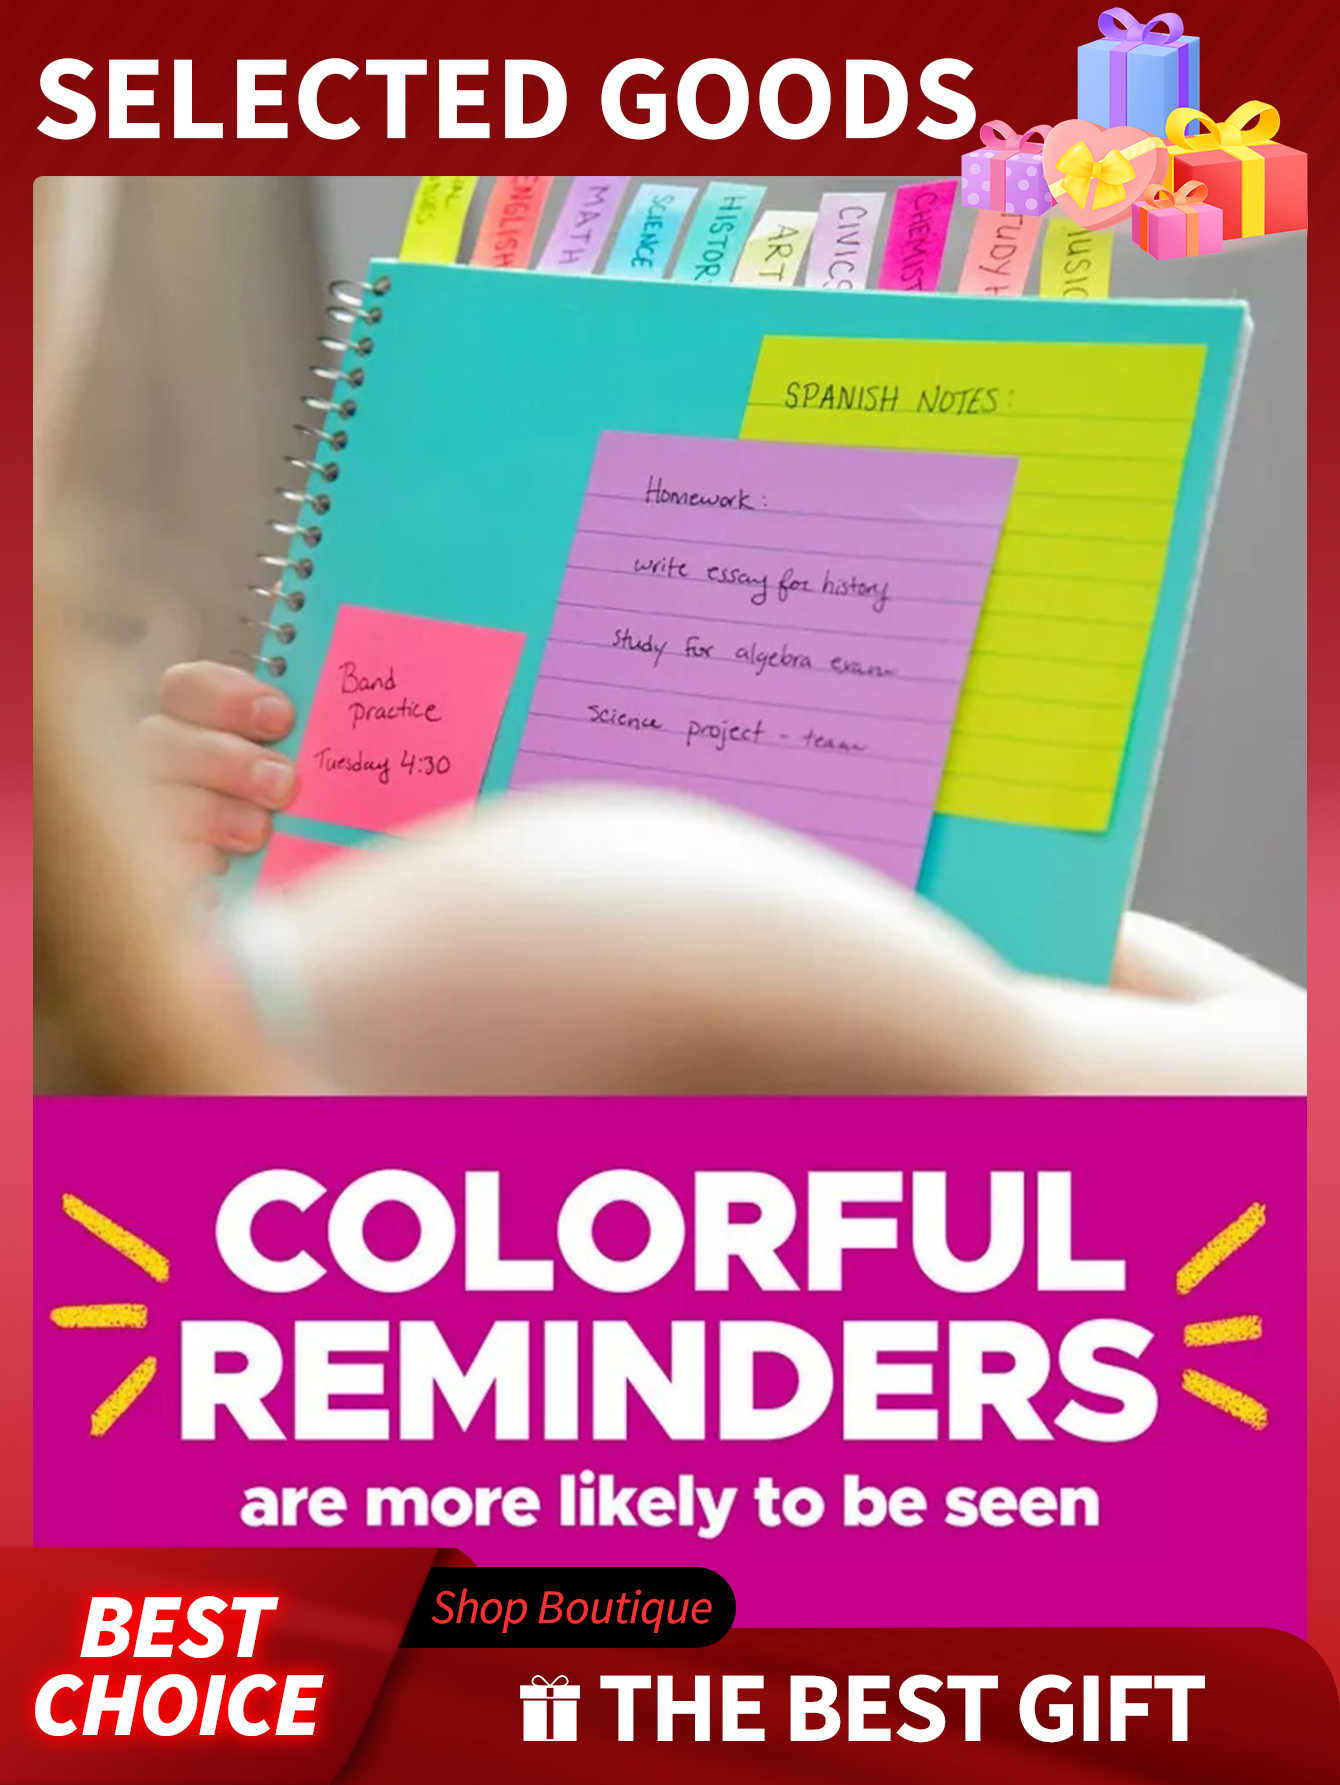 SELECTED GOODS
ENGLISH
MATH
SCIENCE
HISTOR
ART
CIVICS
CHEMIST
TUDY
USIC
SPANISH NOTES:
Homework:
write essay for history
study for algebra exam
science project - team
Band
practice
Tuesday 4:30
COLORFUL
REMINDERS
are more likely to be seen
BEST
CHOICE
Shop Boutique
THE BEST GIFT